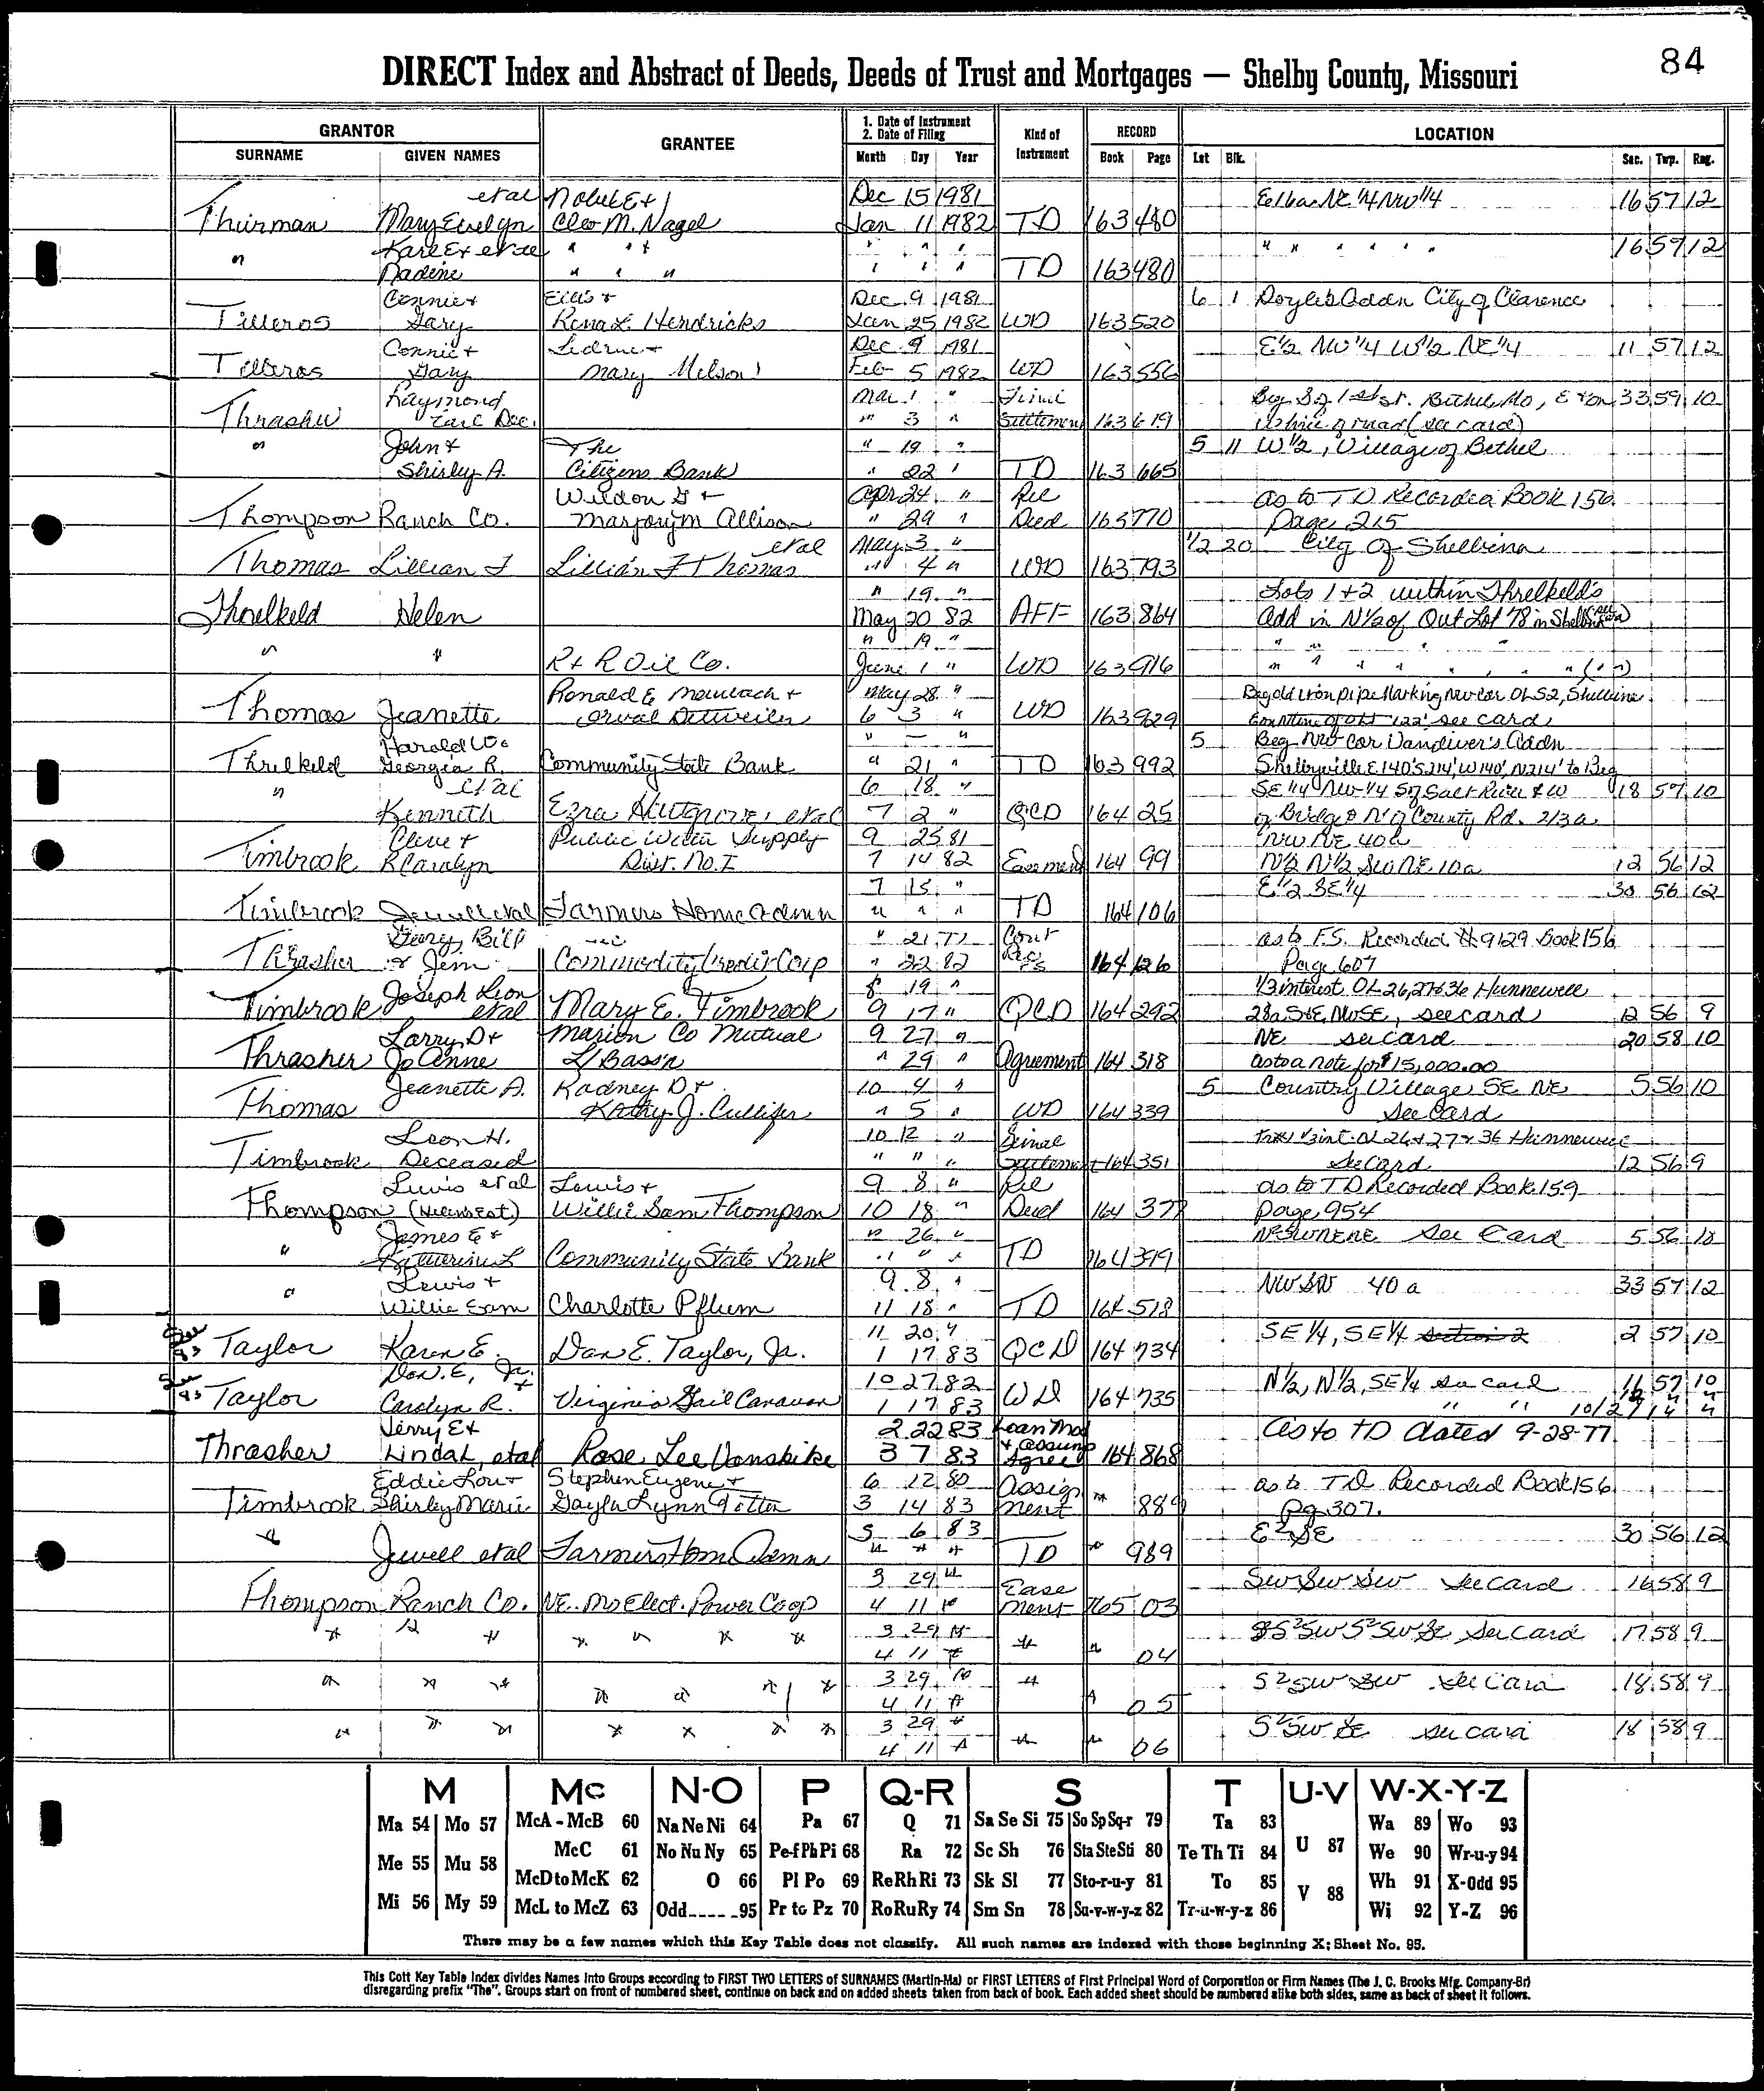 84
DIRECT Index and Abstract of Deeds, Deeds of Trust and Mortgages — Shelby County, Missouri
GRANTOR GRANTEE 1. Date of Instrument 2. Date of Filing Kind of Instrument RECORD LOCATION
SURNAME GIVEN NAMES Month Day Year Book Page Lot Blk. Sec. Twp. Rng.
et al Dec 15 1981 NE 1/4 NW 1/4 16 57 12
Thurman Mary Evelyn Cleo M. Nagel Jan 11 1982 TD 163 480
Karl E + et al " " + " " " " " " " " " 16 59 12
" Nadine " " " " " " TD 163 480
Connie + Ellis + Dec 9 1981 6 1 Doyle's Addn City of Clarence
Tilleros Gary Rena L. Hendricks Jan 25 1982 WD 163 520
Connie + Dec 9 1981 E 1/2 NW 1/4 W 1/2 NE 1/4 11 57 12
Tilleros Gary Mary Melson Feb 5 1982 WD 163 556
Raymond Mar 1 " Final Beg 1st St. Bethel Mo, 33 59 10
Thrasher Earl Dec. " 3 " Settlement 163 619 (see card)
" John + The " 19 " 5 11 W 1/2, Village of Bethel
Shirley A. Citizens Bank " 22 " TD 163 665
Weldon G + Apr 24 " Rel as to TD Recorded Book 156
Thompson Ranch Co. Marjory M Allison " 29 " Deed 163 770 Page 215
et al May 3 " 1/2 20 City of Shelbina
Thomas Lillian F Lillian F Thomas " 4 " WD 163 793
" 19 " Lots 1 + 2 within Threlkeld's
Threlkeld Helen May 20 82 AFF 163 864 Add in N 1/2 of Out Lot 78 in Shelbina
" 19 " " " " " "
" " R + R Oil Co. June 1 " WD 163 916 " " " " " " " (" ")
Ronald E May 28 " Beg old iron pipe Marking NW cor OL 52, Shelbina
Thomas Jeanette Orval Detweiler 6 3 " WD 163 929 122', see card
Harold W. " — " 5 Beg NW cor Vandiver's Addn
Threlkeld Georgia R. Community State Bank " 21 " TD 163 992 Shelbyville E 140' S 214', W 140', N 214' to Beg
" et al 6 18 " SE 1/4 NW 1/4 S of Salt River + W 18 57 10
Kenneth Ezra et al 7 2 " QCD 164 25 of Bridge & N of County Rd. 2/3 a
Clive + Public Water Supply 9 25 81 NW NE 40 a
Timbrook R Carolyn Dist. No. I 7 14 82 Easement 164 99 N 1/2 N 1/2 SW NE 10 a 12 56 12
7 15 " E 1/2 SE 1/4 30 56 12
Timbrook Jewell et al Farmers Home Admn " " " TD 164 106
Gary, Bill " 21 77 Cont as to F.S. Recorded #9129 Book 156
Thrasher + Jim Commodity Credit Corp " 22 82 FS 164 126 Page 607
Joseph Leon 8 19 " 1/3 interest OL 26, 27 & 36 Hunnewell
Timbrook et al Mary E. Timbrook 9 17 " QCD 164 292 see card 12 56 9
Larry D + Marion Co Mutual 9 27 " NE see card 20 58 10
Thrasher Jo Anne " 29 " Agreement 164 318 as to a note for $15,000.00
Jeanette A. Rodney D + 10 4 " 5 Country Village SE NE 5 56 10
Thomas Kathy J. Cullifer " 5 " WD 164 339 see Card
Leon H. 10 12 " Final 1/3 int. OL 26 + 27 + 36 Hunnewell
Timbrook Deceased " " " Settlement 164 351 see Card 12 56 9
Lewis et al Lewis + 9 8 " Rel as to TD Recorded Book 159
Thompson Willie Sam Thompson 10 18 " Deed 164 377 page 954
James E + " 26 " See Card 5 56 10
" Katherine L Community State Bank " " " TD 164 399
Lewis + 9 8 " NW SW 40 a 33 57 12
" Willie Sam Charlotte Pflum 11 18 " TD 164 518
See 11 20 " SE 1/4, SE 1/4 section 2 2 57 10
93 Taylor Karen E. Don E. Taylor, Jr. 1 17 83 QCD 164 734
See Don. E, Jr. + 10 27 82 N 1/2, N 1/2, SE 1/4 see card 11 57 10
93 Taylor Carolyn R. Virginia Gail Caravan 1 17 83 WD 164 735 " "
Jerry E + 2 22 83 Loan Mod as to TD dated 9-28-77
Thrasher Linda L, et al Rose Lee Vanskike 3 7 83 + assump Agree 164 868
Eddie Lou + Stephen Eugene + 6 12 80 Assign as to TD Recorded Book 156
Timbrook Shirley Marie Gayla Lynn 3 14 83 ment " 889 Pg 307.
" 5 6 83 E 2 SE 30 56 12
Jewell et al Farmers Hom Admn " " " TD " 989
3 29 " Ease SW SW SW see card 16 58 9
Thompson Ranch Co. NE. Mo Elect. Power Coop 4 11 " ment 165 03
" " " " " " " 3 29 " " S 2 SW S 2 SW SE see card 17 58 9
4 11 " " 04
" " " " " " " 3 29 " " S 2 SW SW see card 18 58 9
4 11 " " 05
" " " " " " " 3 29 " " S 2 SW SE see card 18 58 9
4 11 " " 06
M Mc N-O P Q-R S T U-V W-X-Y-Z
Ma 54 Mo 57 McA - McB 60 Na Ne Ni 64 Pa 67 Q 71 Sa Se Si 75 So Sp Sq-r 79 Ta 83 Wa 89 Wo 93
McC 61 No Nu Ny 65 Pe-f Ph Pi 68 Ra 72 Sc Sh 76 Sta Ste Sti 80 Te Th Ti 84 U 87 We 90 Wr-u-y 94
Me 55 Mu 58 McD to McK 62 O 66 Pl Po 69 Re Rh Ri 73 Sk Sl 77 Sto-r-u-y 81 To 85 Wh 91 X-Odd 95
Mi 56 My 59 McL to McZ 63 Odd------95 Pr to Pz 70 Ro Ru Ry 74 Sm Sn 78 Su-v-w-y-z 82 Tr-u-w-y-z 86 V 88 Wi 92 Y-Z 96
There may be a few names which this Key Table does not classify. All such names are indexed with those beginning X; Sheet No. 95.
This Cott Key Table Index divides Names into Groups according to FIRST TWO LETTERS of SURNAMES (Martin-Ma) or FIRST LETTERS of First Principal Word of Corporation or Firm Names (The J. C. Brooks Mfg. Company-Br)
disregarding prefix "The". Groups start on front of numbered sheet, continue on back and on added sheets taken from back of book. Each added sheet should be numbered alike both sides, same as back of sheet it follows.